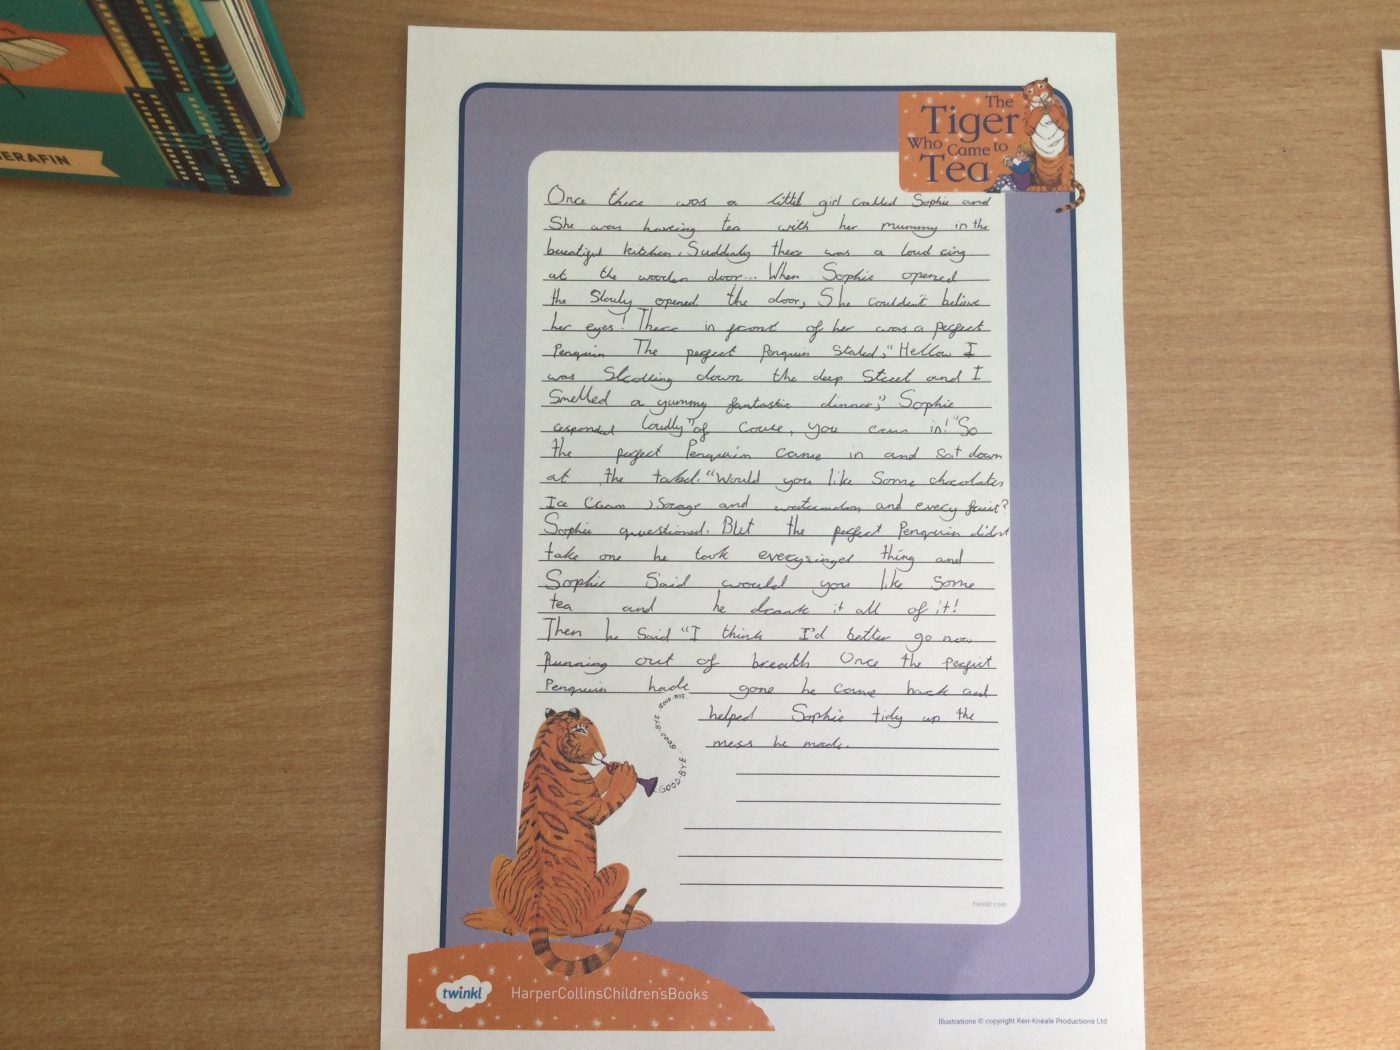 SERAFIN
The
Tiger
Who Came to
Tea
Once there was a little girl called Sophie and
She was having tea with her mummy in the
beautiful kitchen. Suddenly there was a loud ring
at the wooden door... When Sophie opened
the Slowly opened the door, She couldn't believe
her eyes! There in front of her was a perfect
Penguin The perfect Penguin Stated, "Hellow I
was Strolling down the deep Street and I
Smelled a yummy fantastic dinner," Sophie
responed loudly "of Couse, you can in!" So
the perfect Penguin came in and sat down
at the tabel. "Would you like Some chocolates
Ice Cream, Sorage and watermelon and every fruit?
Sophie questioned. But the perfect Penguin didn't
take one he took everysingel thing and
Sophie Said would you like Some
tea and he drank it all of it!
Then he Said "I think I'd better go now
Running out of breath Once the perfect
Penguin hade gone he came back and
helped Sophie tidy up the
mess he made.
GOOD-BYE GOOD-BYE GOOD BYE
twinkl.com
twinkl
HarperCollinsChildren'sBooks
Illustrations © copyright Kerr-Kneale Productions Ltd